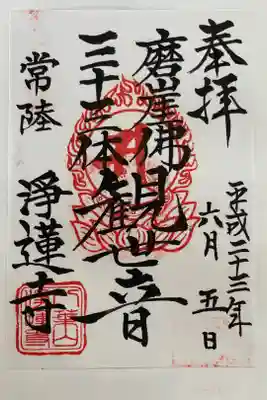 奉拝
平成二十三年
六月五日
磨崖佛
三十三体
観世音
常陸
浄蓮寺